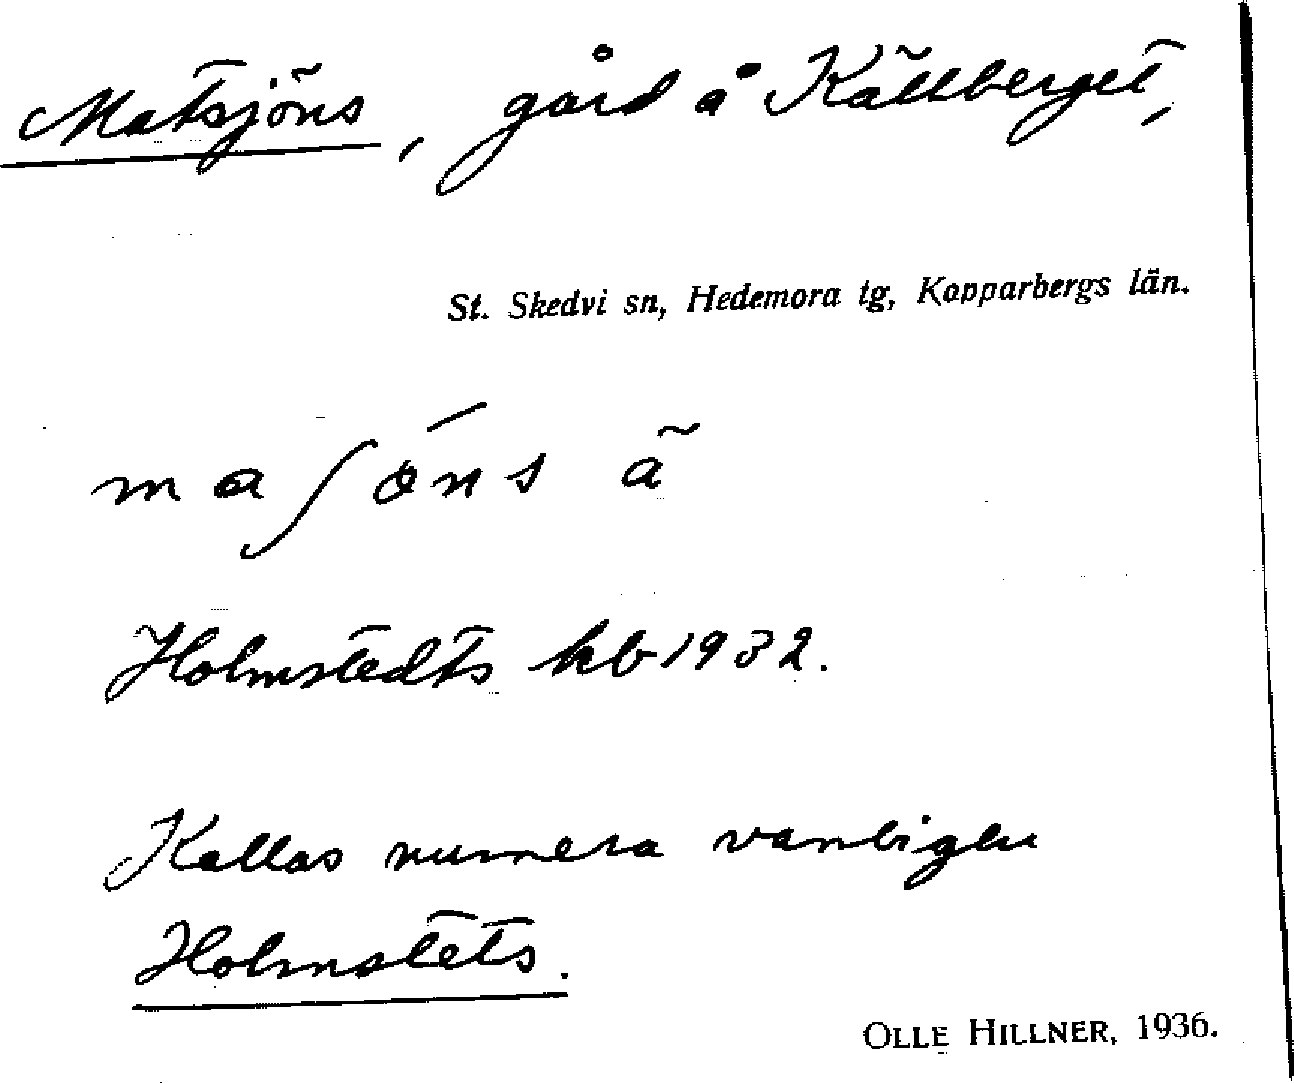 Matsjöns, gård å Källberget,
St. Skedvi sn, Hedemora tg, Kopparbergs län.
maʃöns ã
Holmstedts kb 1932.
Kallas numera vanligen
Holmstets.
OLLE HILLNER, 1936.